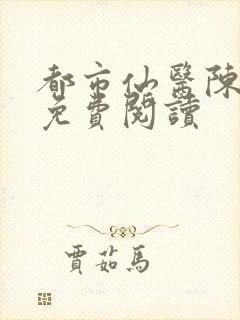 都市仙醫陳
免費閱讀
賈茹馬